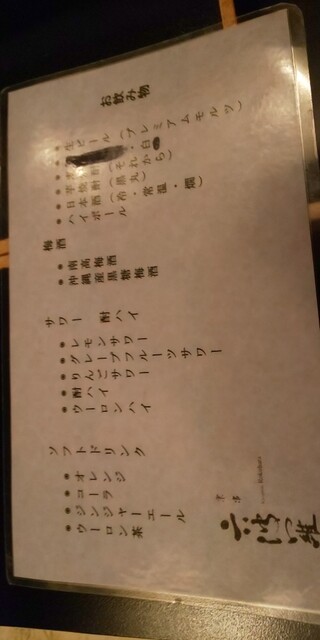 お飲み物
生ビール(プレミアムモルツ)
・白
芋焼酎(それから)
焼酎(黒丸)
日本酒(冷・常温・燗)
ハイボール
梅酒
南高梅酒
沖縄産黒糖梅酒
サワー 酎ハイ
レモンサワー
グレープフルーツサワー
りんごサワー
酎ハイ
ウーロンハイ
ソフトドリンク
オレンジ
コーラ
ジンジャーエール
ウーロン茶